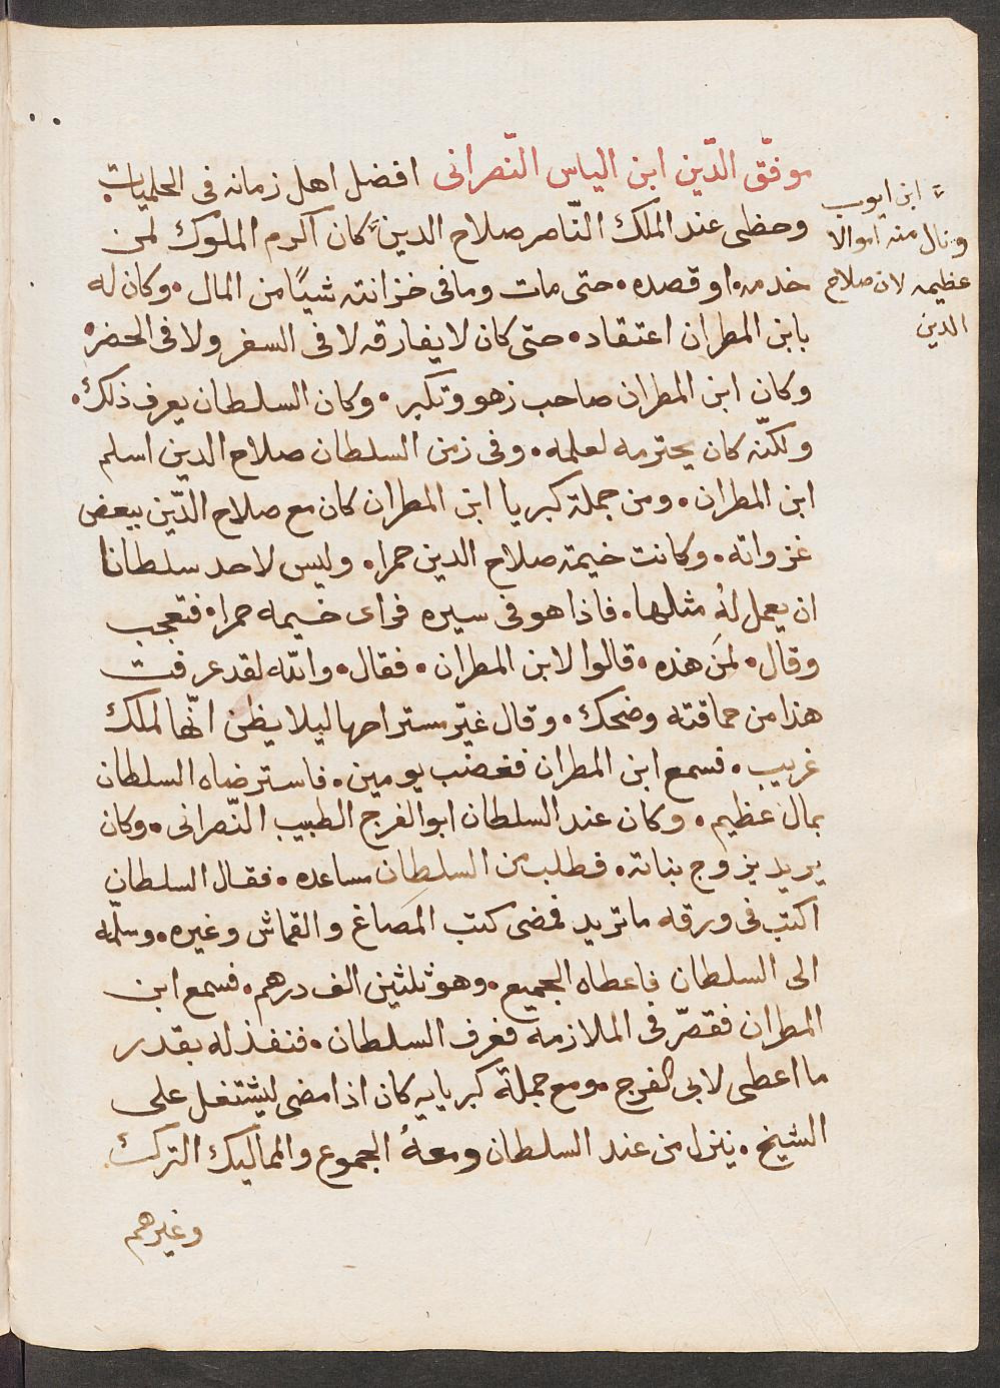 موفّق الدّين ابن الياس النّصرانى افضل اهل زمانه فى الحلميات
وحظى عند الملك النّاصر صلاح الدين كان آكرم الملوك لمن
خدمه او قصده • حتى مات وما فى خزانته شيئًا من المال • وكان له
بابن المطران اعتقاد • حتى كان لا يفارقه لا فى السفر ولا فى الحضر •
وكان ابن المطران صاحب زهو وتكبر • وكان السلطان يعرف ذلك •
ولكنّه كان يحترمه لعلمه • وفى زمن السلطان صلاح الدين اسلم
ابن المطران • ومن جملة كبريا ابن المطران كان مع صلاح الدّين ببعض
غزواته • وكانت خيمة صلاح الدين حمرا • وليس لاحد سلطانا
ان يعمل لهُ مثلها • فاذا هو فى سيره فراى خيمه حمرا • فتعجب
وقال • لمَن هذه • قالوا لابن المطران • فقال • والله لقد عرفت
هذا من حماقته وضحك • وقال غيّر مستراحها ليلا يظن انّها لملك
غريب • فسمع ابن المطران فغضب يومين • فاسترضاه السلطان
بمال عظيم • وكان عند السلطان ابو الفرج الطبيب النّصرانى • وكان
يريد يزوج بناته • فطلب من السلطان مساعده • فقال السلطان
اكتب فى ورقه ما تريد فمضى كتب المصَاغ والقماش وغيره • وسلّمه
الى السلطان فاعطاه الجميع • وهو ثلثين الف درهم • فسمع ابن
المطران فقصّر فى الملازمة فعرف السلطان • فنفذ له بقدر
ما اعطى لابى الفرج ومع جملة كبريايه كان اذا مضى ليشتغل على
الشيخ • ينزل من عند السلطان ومعهُ الجموع والمماليك الترك
وغيرهم
ابن ايوب
ونال منه اموالا
عظيمه لان صلاح
الدين